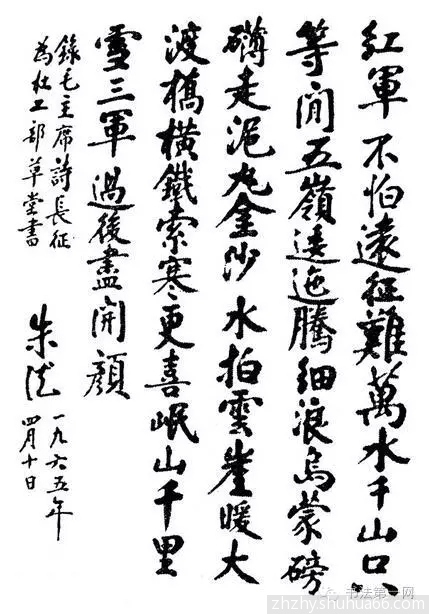 紅軍不怕遠征難萬水千山只
等閒五嶺逶迤騰細浪烏蒙磅
礴走泥丸金沙水拍雲崖暖大
渡橋橫鐵索寒更喜岷山千里
雪三軍過後盡開顏
錄毛主席詩長征
為杜工部草堂書
朱德
一九六五年
四月十日
书法第一网
zhzhyshuhua66.com